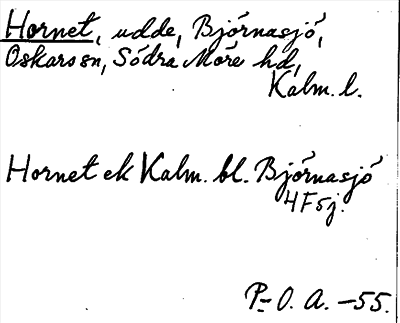 Hornet, udde, Björnasjö,
Oskars sn, Södra Möre hd,
Kalm. l.
Hornet ek Kalm. bl. Björnasjö
4F5j.
P-O. A. -55.